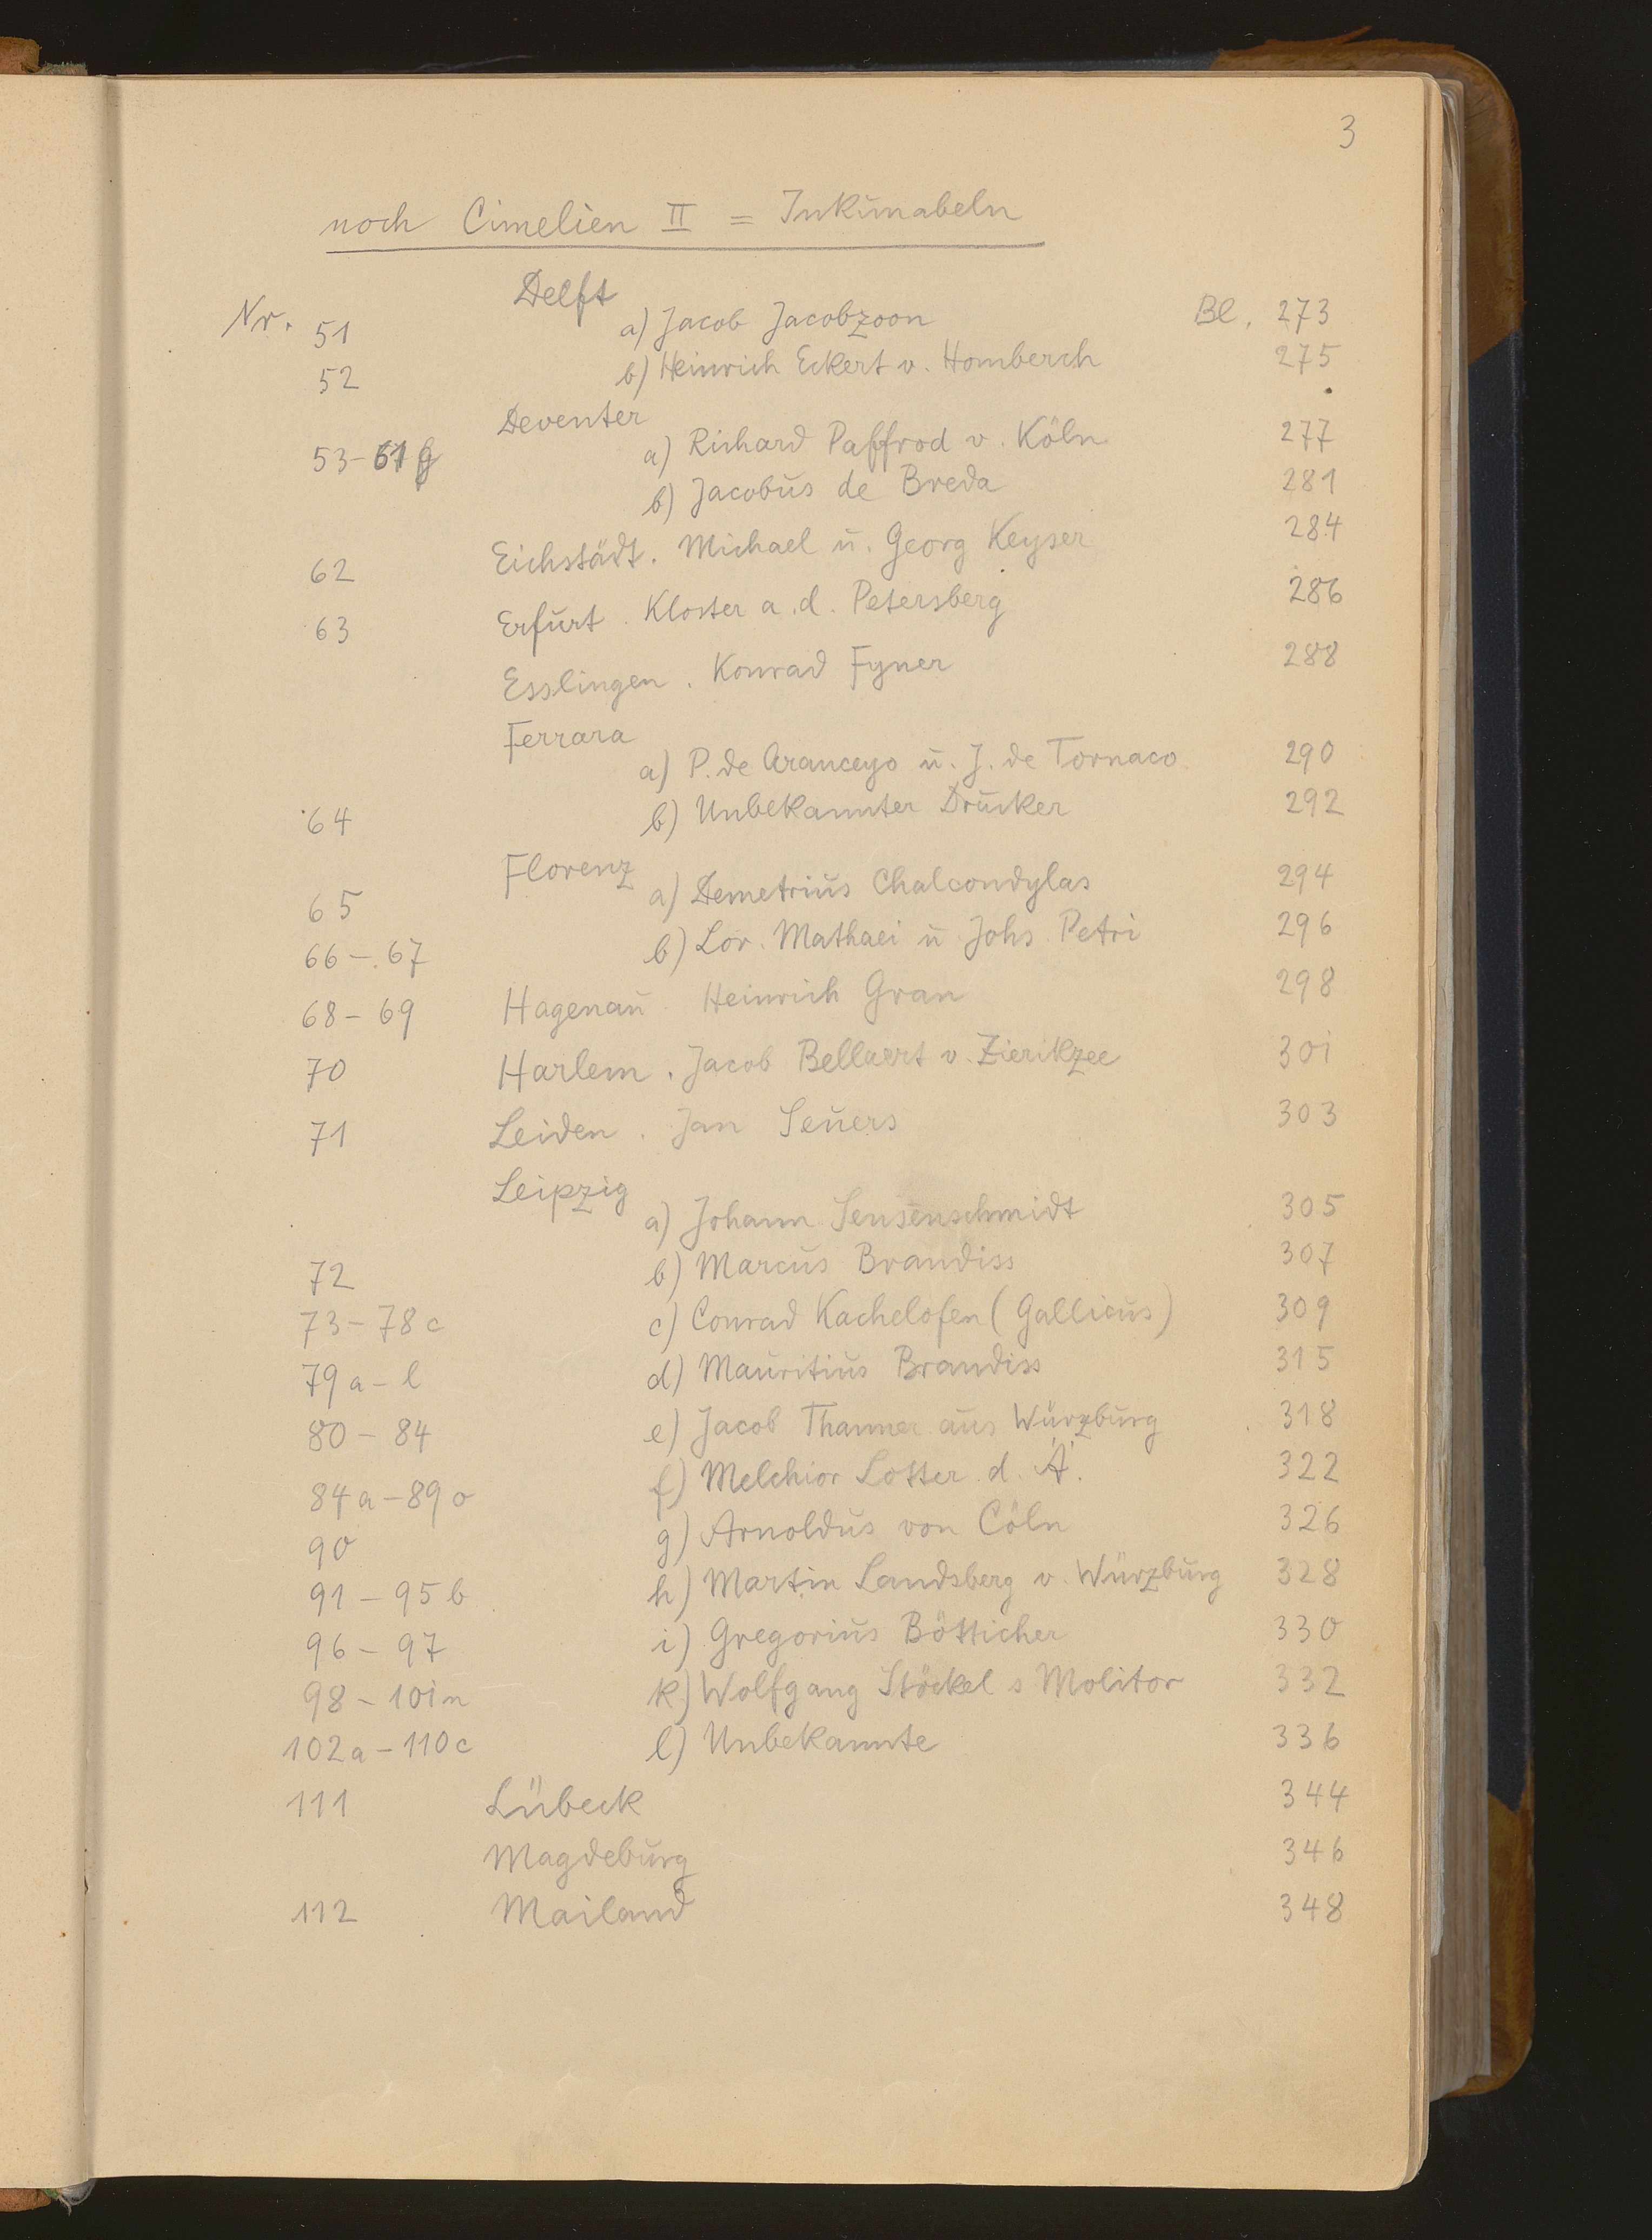 3
noch Cimelien II = Inkunabeln
Delft
Nr. 51 a) Jacob Jacobzoon Bl. 273
52 b) Heinrich Eckert v. Homberch 275
Deventer
53-61g a) Richard Paffrod v. Köln 277
b) Jacobus de Breda 281
62 Eichstädt. Michael u. Georg Keyser 284
63 Erfurt. Kloster a. d. Petersberg 286
Esslingen. Konrad Fyner 288
Ferrara
a) P. de Aranceyo u. J. de Tornaco 290
64 b) Unbekannter Drucker 292
Florenz
65 a) Demetrius Chalcondylas 294
66-67 b) Lor. Mathaei u Johs Petri 296
68-69 Hagenau Heinrich Gran 298
70 Harlem. Jacob Bellaert v. Zierikzee 301
71 Leiden. Jan Seuers 303
Leipzig
a) Johann Sensenschmidt 305
72 b) Marcus Brandiss 307
73-78c c) Conrad Kachelofen (Gallicus) 309
79a-l d) Mauritius Brandiss 315
80-84 e) Jacob Thanner aus Würzburg 318
84a-89o f) Melchior Lotter d. Ä. 322
90 g) Arnoldus von Cöln 326
91-95b h) Martin Landsberg v. Würzburg 328
96-97 i) Gregorius Bötticher 330
98-101n k) Wolfgang Stöckel s Molitor 332
102a-110c l) Unbekannte 336
111 Lübeck 344
Magdeburg 346
112 Mailand 348